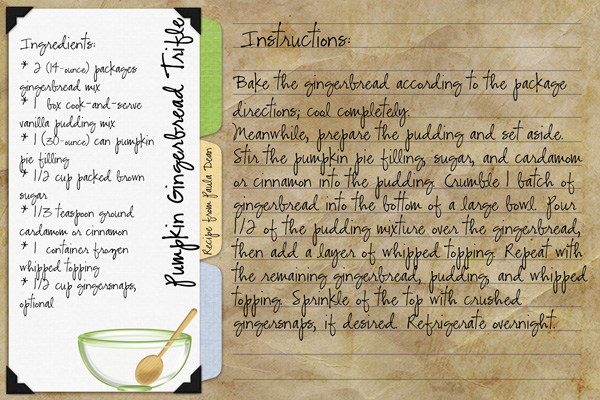 Ingredients:
* 2 (14-ounce) packages
gingerbread mix
* 1 box cook-and-serve
vanilla pudding mix
* 1 (30-ounce) can pumpkin
pie filling
* 1/2 cup packed brown
sugar
* 1/3 teaspoon ground
cardamom or cinnamon
* 1 container frozen
whipped topping
* 1/2 cup gingersnaps,
optional
Pumpkin Gingerbread Trifle
Recipe from Paula Dean
Instructions:
Bake the gingerbread according to the package
directions; cool completely.
Meanwhile, prepare the pudding and set aside.
Stir the pumpkin pie filling, sugar, and cardamom
or cinnamon into the pudding. Crumble 1 batch of
gingerbread into the bottom of a large bowl. Pour
1/2 of the pudding mixture over the gingerbread,
then add a layer of whipped topping. Repeat with
the remaining gingerbread, pudding, and whipped
topping. Sprinkle of the top with crushed
gingersnaps, if desired. Refrigerate overnight.